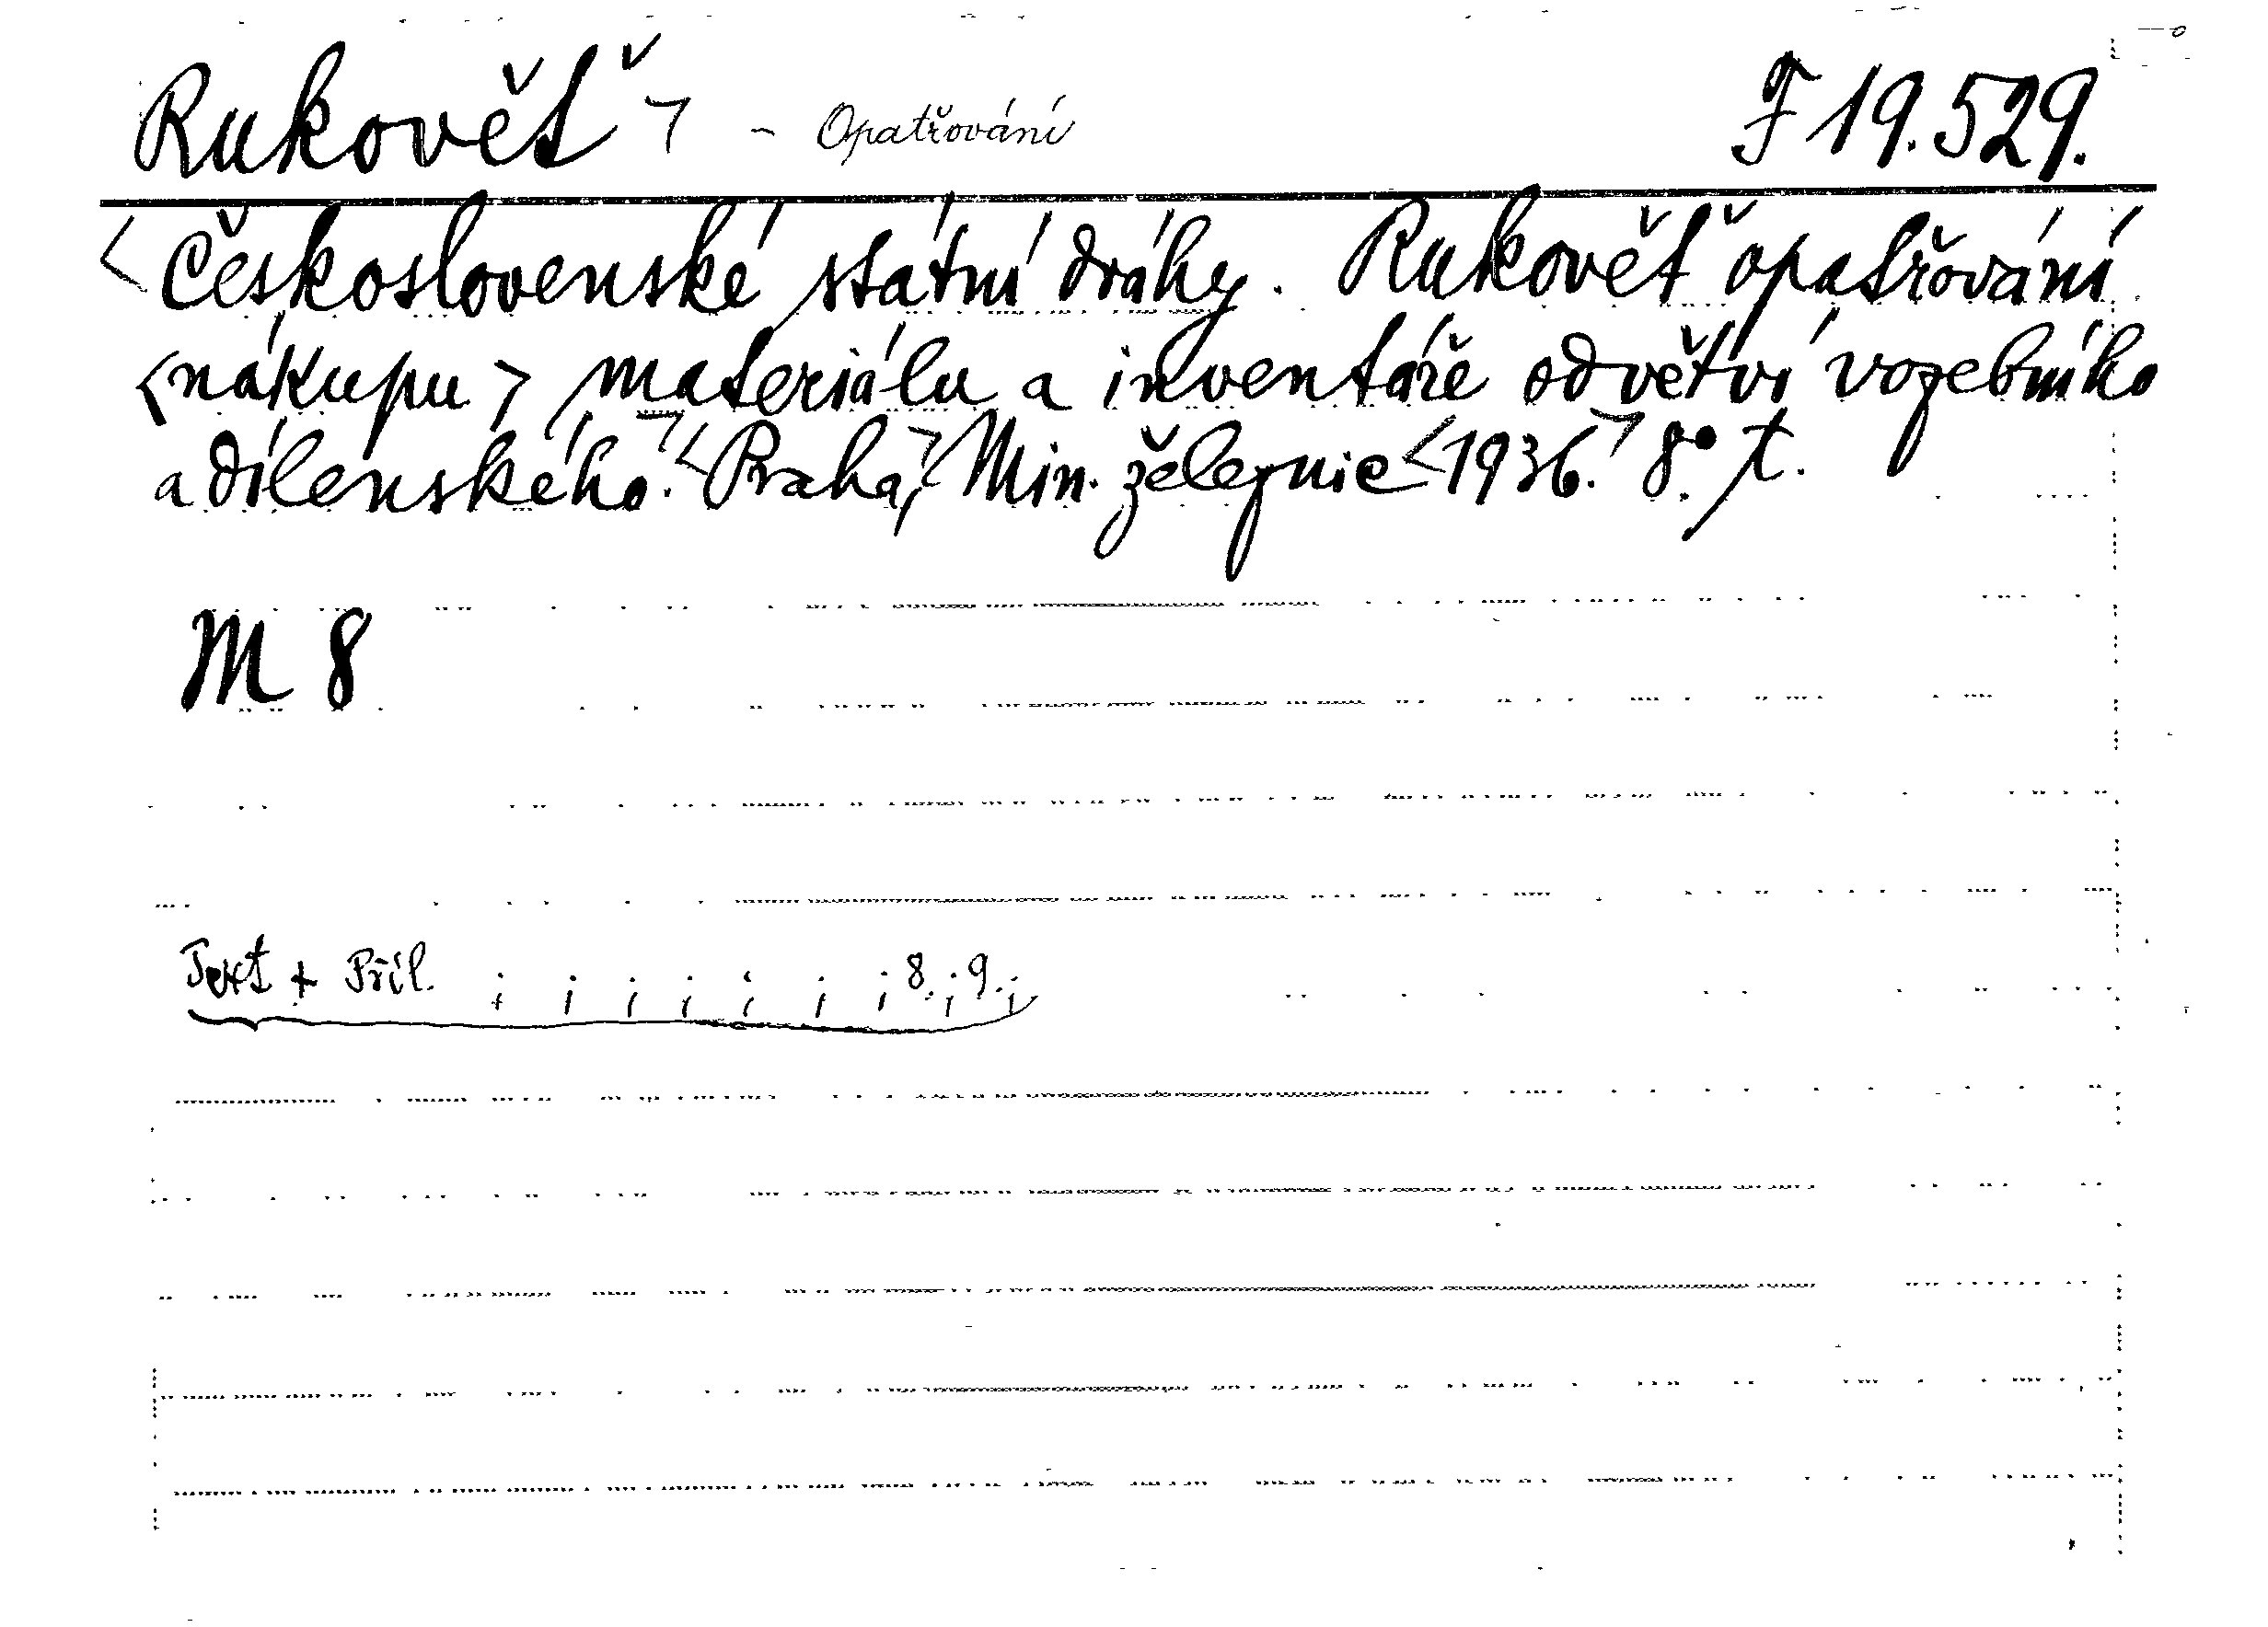 Rukověť > - Opatřování F 19.529.
<Československé státní dráhy. Rukověť opatřování
<nákupu> materiálu a inventáře odvětví vozebního
a dílenského.> <Praha,> Min. železnic <1936.> 8°. t.
M 8
Text + Příl. ; ; ; ; ; ; ; 8.; 9.;